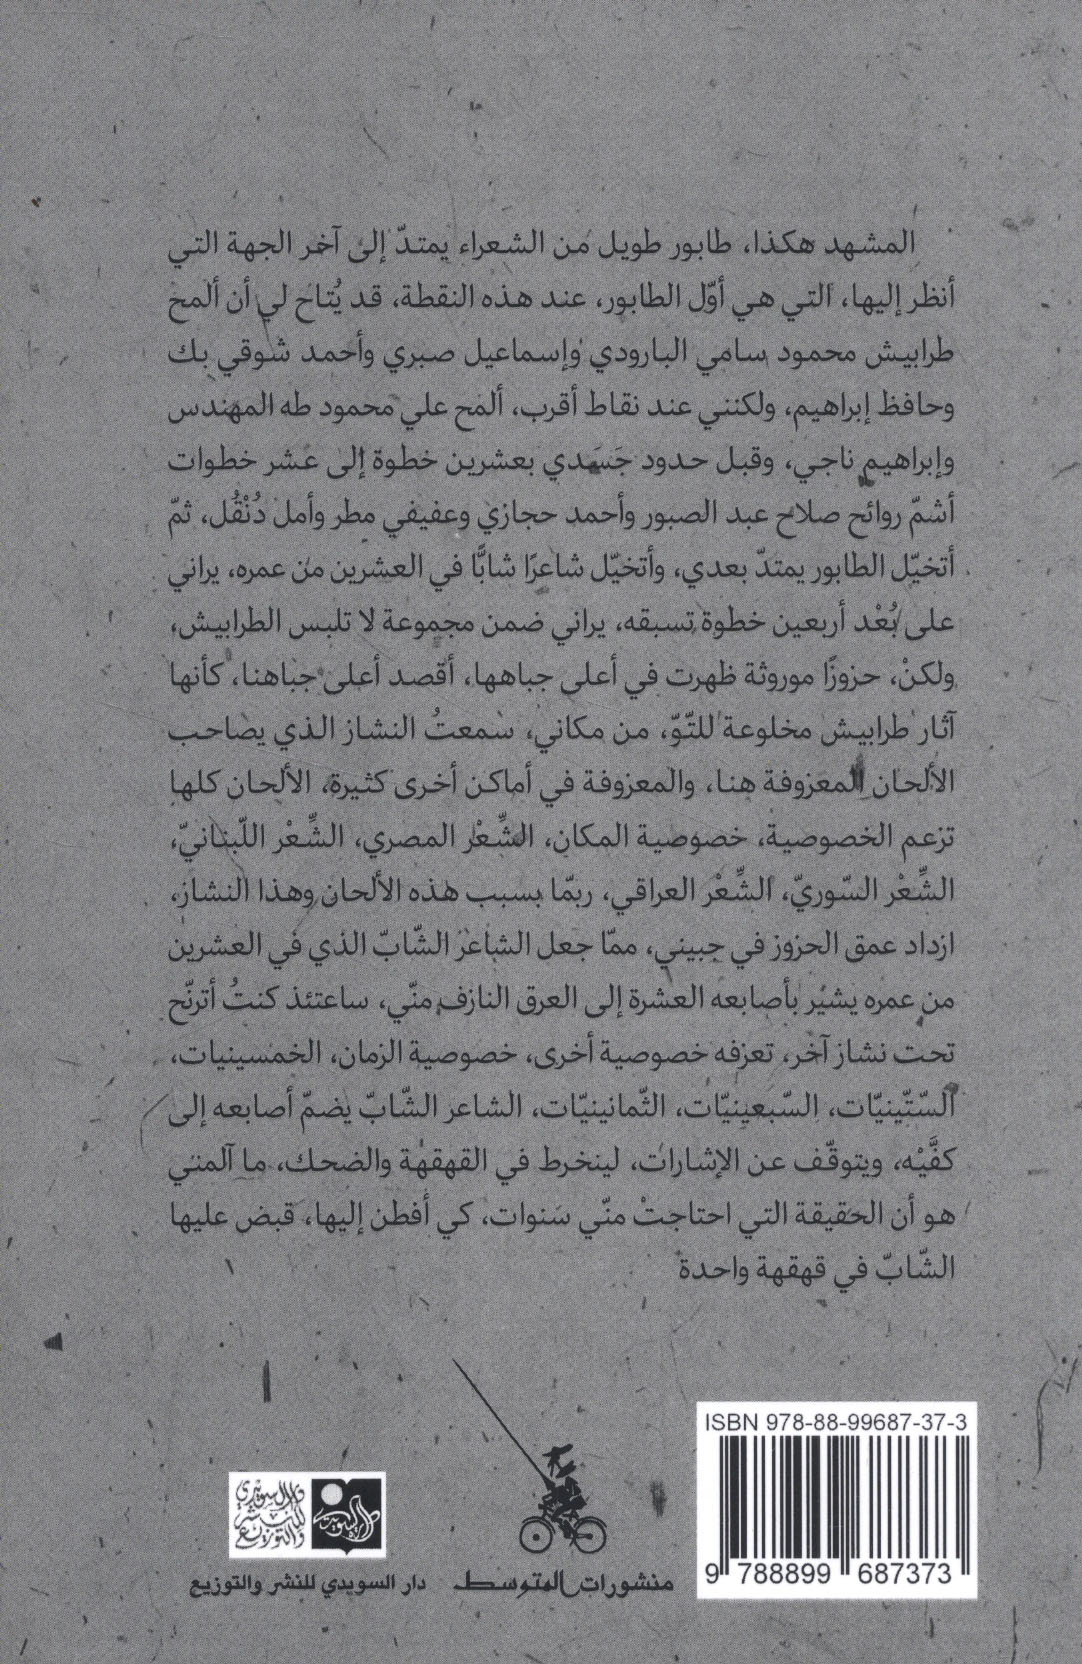 المشهد هكذا، طابور طويل من الشعراء يمتدّ إلى آخر الجهة التي
أنظر إليها، التي هي أوّل الطابور، عند هذه النقطة، قد يُتاح لي أن ألمح
طرابيش محمود سامي البارودي وإسماعيل صبري وأحمد شوقي بك
وحافظ إبراهيم، ولكنني عند نقاط أقرب، ألمح علي محمود طه المهندس
وإبراهيم ناجي، وقبل حدود جَسَدي بعشرين خطوة إلى عشر خطوات
أشمّ روائح صلاح عبد الصبور وأحمد حجازي وعفيفي مطر وأمل دُنْقُل، ثمّ
أتخيّل الطابور يمتدّ بعدي، وأتخيّل شاعرًا شابًّا في العشرين من عمره، يراني
على بُعْد أربعين خطوة تسبقه، يراني ضمن مجموعة لا تلبس الطرابيش،
ولكنْ، حزوزًا موروثة ظهرت في أعلى جباهها، أقصد أعلى جباهنا، كأنها
آثار طرابيش مخلوعة للتّوّ، من مكاني، سمعتُ النشاز الذي يصاحب
الألحان المعزوفة هنا، والمعزوفة في أماكن أخرى كثيرة، الألحان كلها
تزعم الخصوصية، خصوصية المكان، الشِّعْر المصري، الشِّعْر اللّبنانيّ،
الشِّعْر السّوريّ، الشِّعْر العراقي، ربمّا بسبب هذه الألحان وهذا النشاز،
ازداد عمق الحزوز في جبيني، ممّا جعل الشاعر الشّابّ الذي في العشرين
من عمره يشير بأصابعه العشرة إلى العرق النازف منّي، ساعتئذ كنتُ أترنّح
تحت نشاز آخر، تعزفه خصوصية أخرى، خصوصية الزمان، الخمسينيات،
السّتّينيّات، السّبعينيّات، الثّمانينيّات، الشاعر الشّابّ يضمّ أصابعه إلى
كفَّيْه، ويتوقّف عن الإشارات، لينخرط في القهقهة والضحك، ما آلمني
هو أن الحقيقة التي احتاجتْ منّي سَنوات، كي أفطن إليها، قبض عليها
الشّابّ في قهقهة واحدة
ISBN 978-88-99687-37-3
9 788899 687373
منشورات المتوسط
دار السويدي للنشر والتوزيع
دار السويدي
للنشر
والتوزيع
السويدي